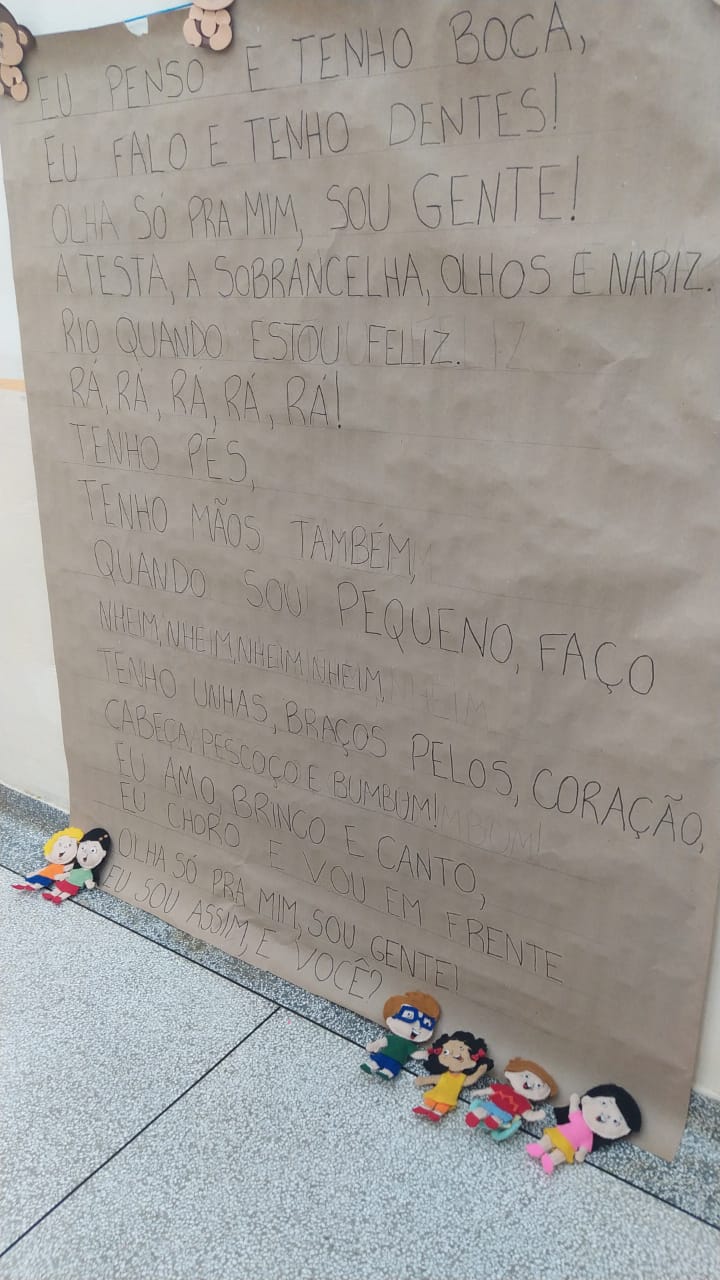 EU PENSO E TENHO BOCA,
EU FALO E TENHO DENTES!
OLHA SÓ PRA MIM, SOU GENTE!
A TESTA, A SOBRANCELHA, OLHOS E NARIZ.
RIO QUANDO ESTOU FELIZ.
RÁ, RÁ, RÁ, RÁ, RÁ!
TENHO PÉS,
TENHO MÃOS TAMBÉM,
QUANDO SOU PEQUENO, FAÇO
NHEIM, NHEIM, NHEIM, NHEIM,
TENHO UNHAS, BRAÇOS PELOS, CORAÇÃO,
CABEÇA, PESCOÇO E BUMBUM!
EU AMO, BRINCO E CANTO,
EU CHORO E VOU EM FRENTE
OLHA SÓ PRA MIM, SOU GENTE!
EU SOU ASSIM, E VOCÊ?